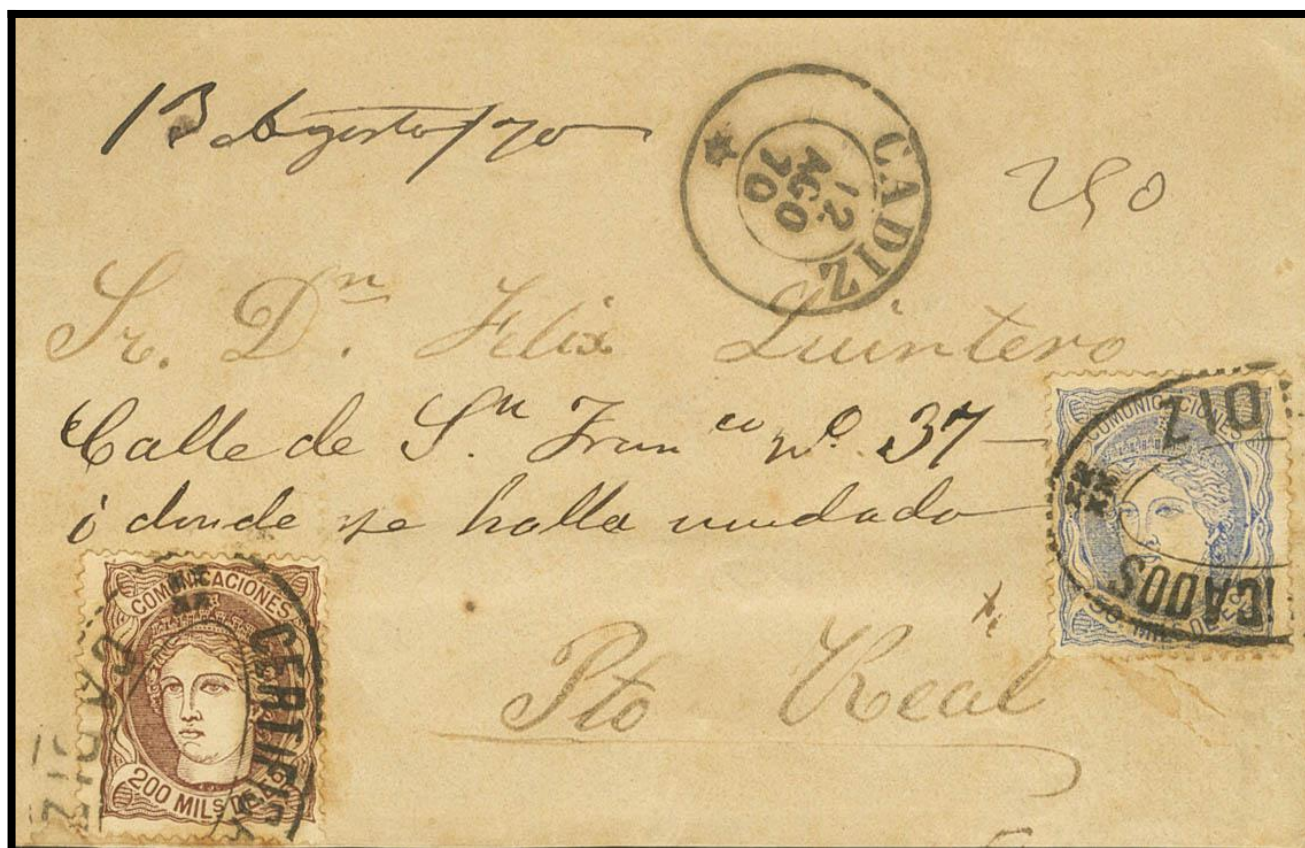 13 Agosto/70
CADIZ
12
AGO
70
250
Sr. Dn. Felix Quintero
Calle de Sn Franco no. 37
ó donde se halla mudado
Pto Real
COMUNICACIONES
50 MILS DE Eo
DIZ
ICADOS
COMUNICACIONES
200 MILS DE Eo
CERTIFIC
CADIZ